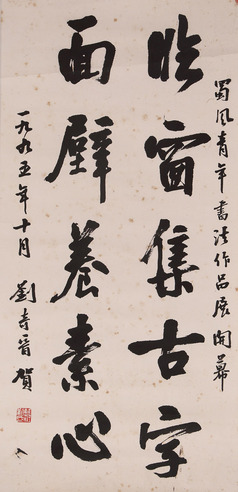 蜀风青年书法作品展开幕
临窗集古字
面壁养素心
一九九五年十月 刘奇晋贺